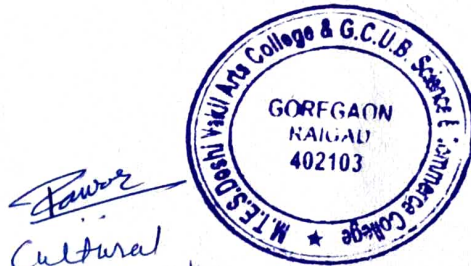 M.T.E.S.Doshi Vakil Arts College & G.C.U.B. Science & Commerce College ★
GOREGAON
RAIGAD
402103
Pawar
Cultural